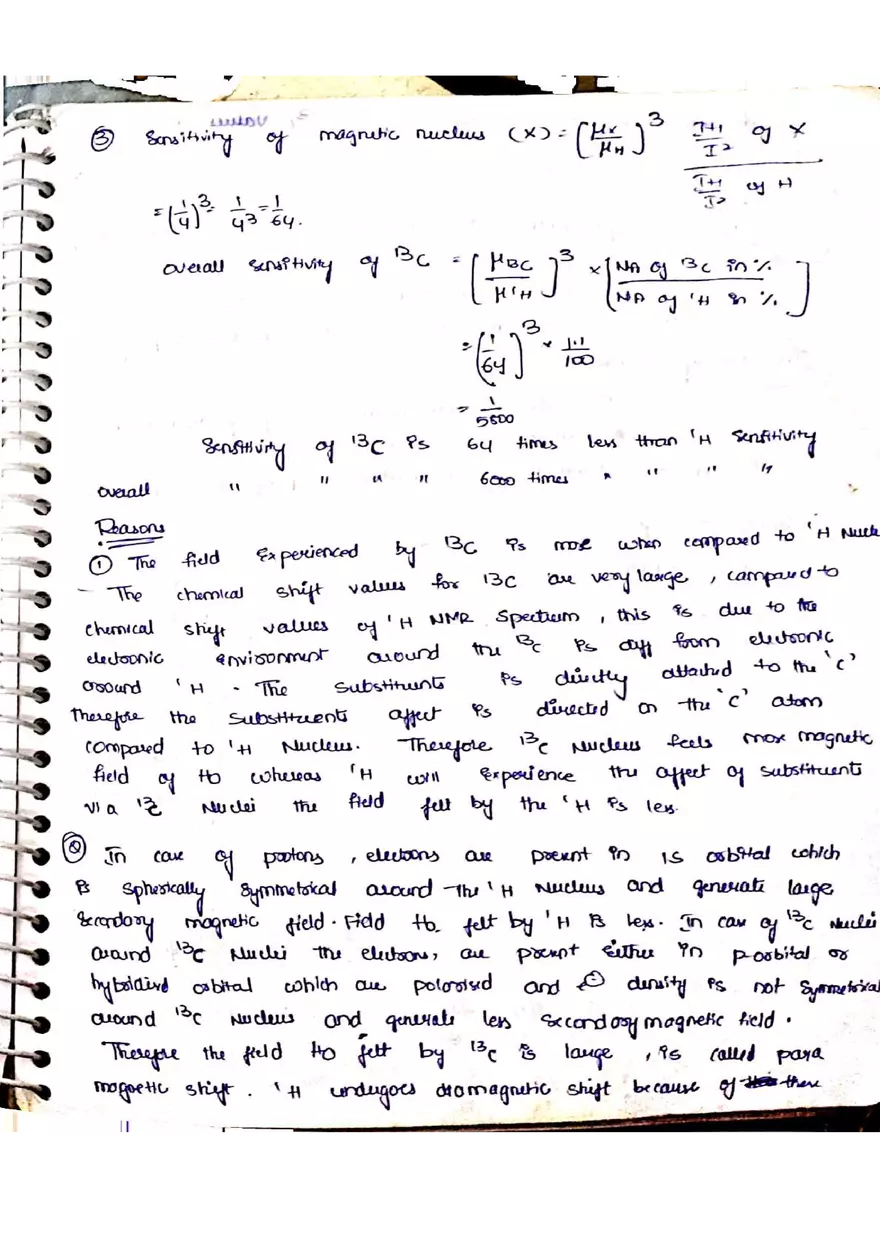 ③ Sensitivity of magnetic nucleus (X) = [μX/μH]³ (I+1/I² of X)/(I+1/I² of H)
= (1/4)³ = 1/4³ = 1/64.
overall sensitivity of 13C = [μ13C/μ1H]³ × [NA of 13C in %/NA of 1H in %]
= (1/64)³ × 1.1/100
= 1/5800
Sensitivity of 13C is 64 times less than 1H Sensitivity
overall " " " " 6000 times " " " "
Reasons
① The field Experienced by 13C is more when compared to 1H Nucle
- The chemical shift values for 13C are very large, compared to
chemical shift values of 1H NMR Spectrum, this is due to the
electronic environment around the 13C is diff from electronic
around 1H. The substituents is directly attached to the 'C'
therefore the substituents affect is directed on the 'C' atom
compared to 1H Nucleus. Therefore 13C Nucleus feels more magnetic
field of Ho whereas 1H will Experience the affect of substituents
via 13C Nuclei the field felt by the 1H is less.
② In case of protons, electrons are present in 1S orbital which
is spherically symmetrical around the 1H Nucleus and generate large
secondary magnetic field. Field Ho felt by 1H is less. In case of 13C Nuclei
around 13C Nuclei the electrons, are present either in p-orbital or
hybridized orbital which are polarised and e⊖ density is not symmetrical
around 13C Nucleus and generate less secondary magnetic field.
Therefore the field Ho felt by 13C is large, is called para
magnetic shift. 1H undergoes diamagnetic shift because of there